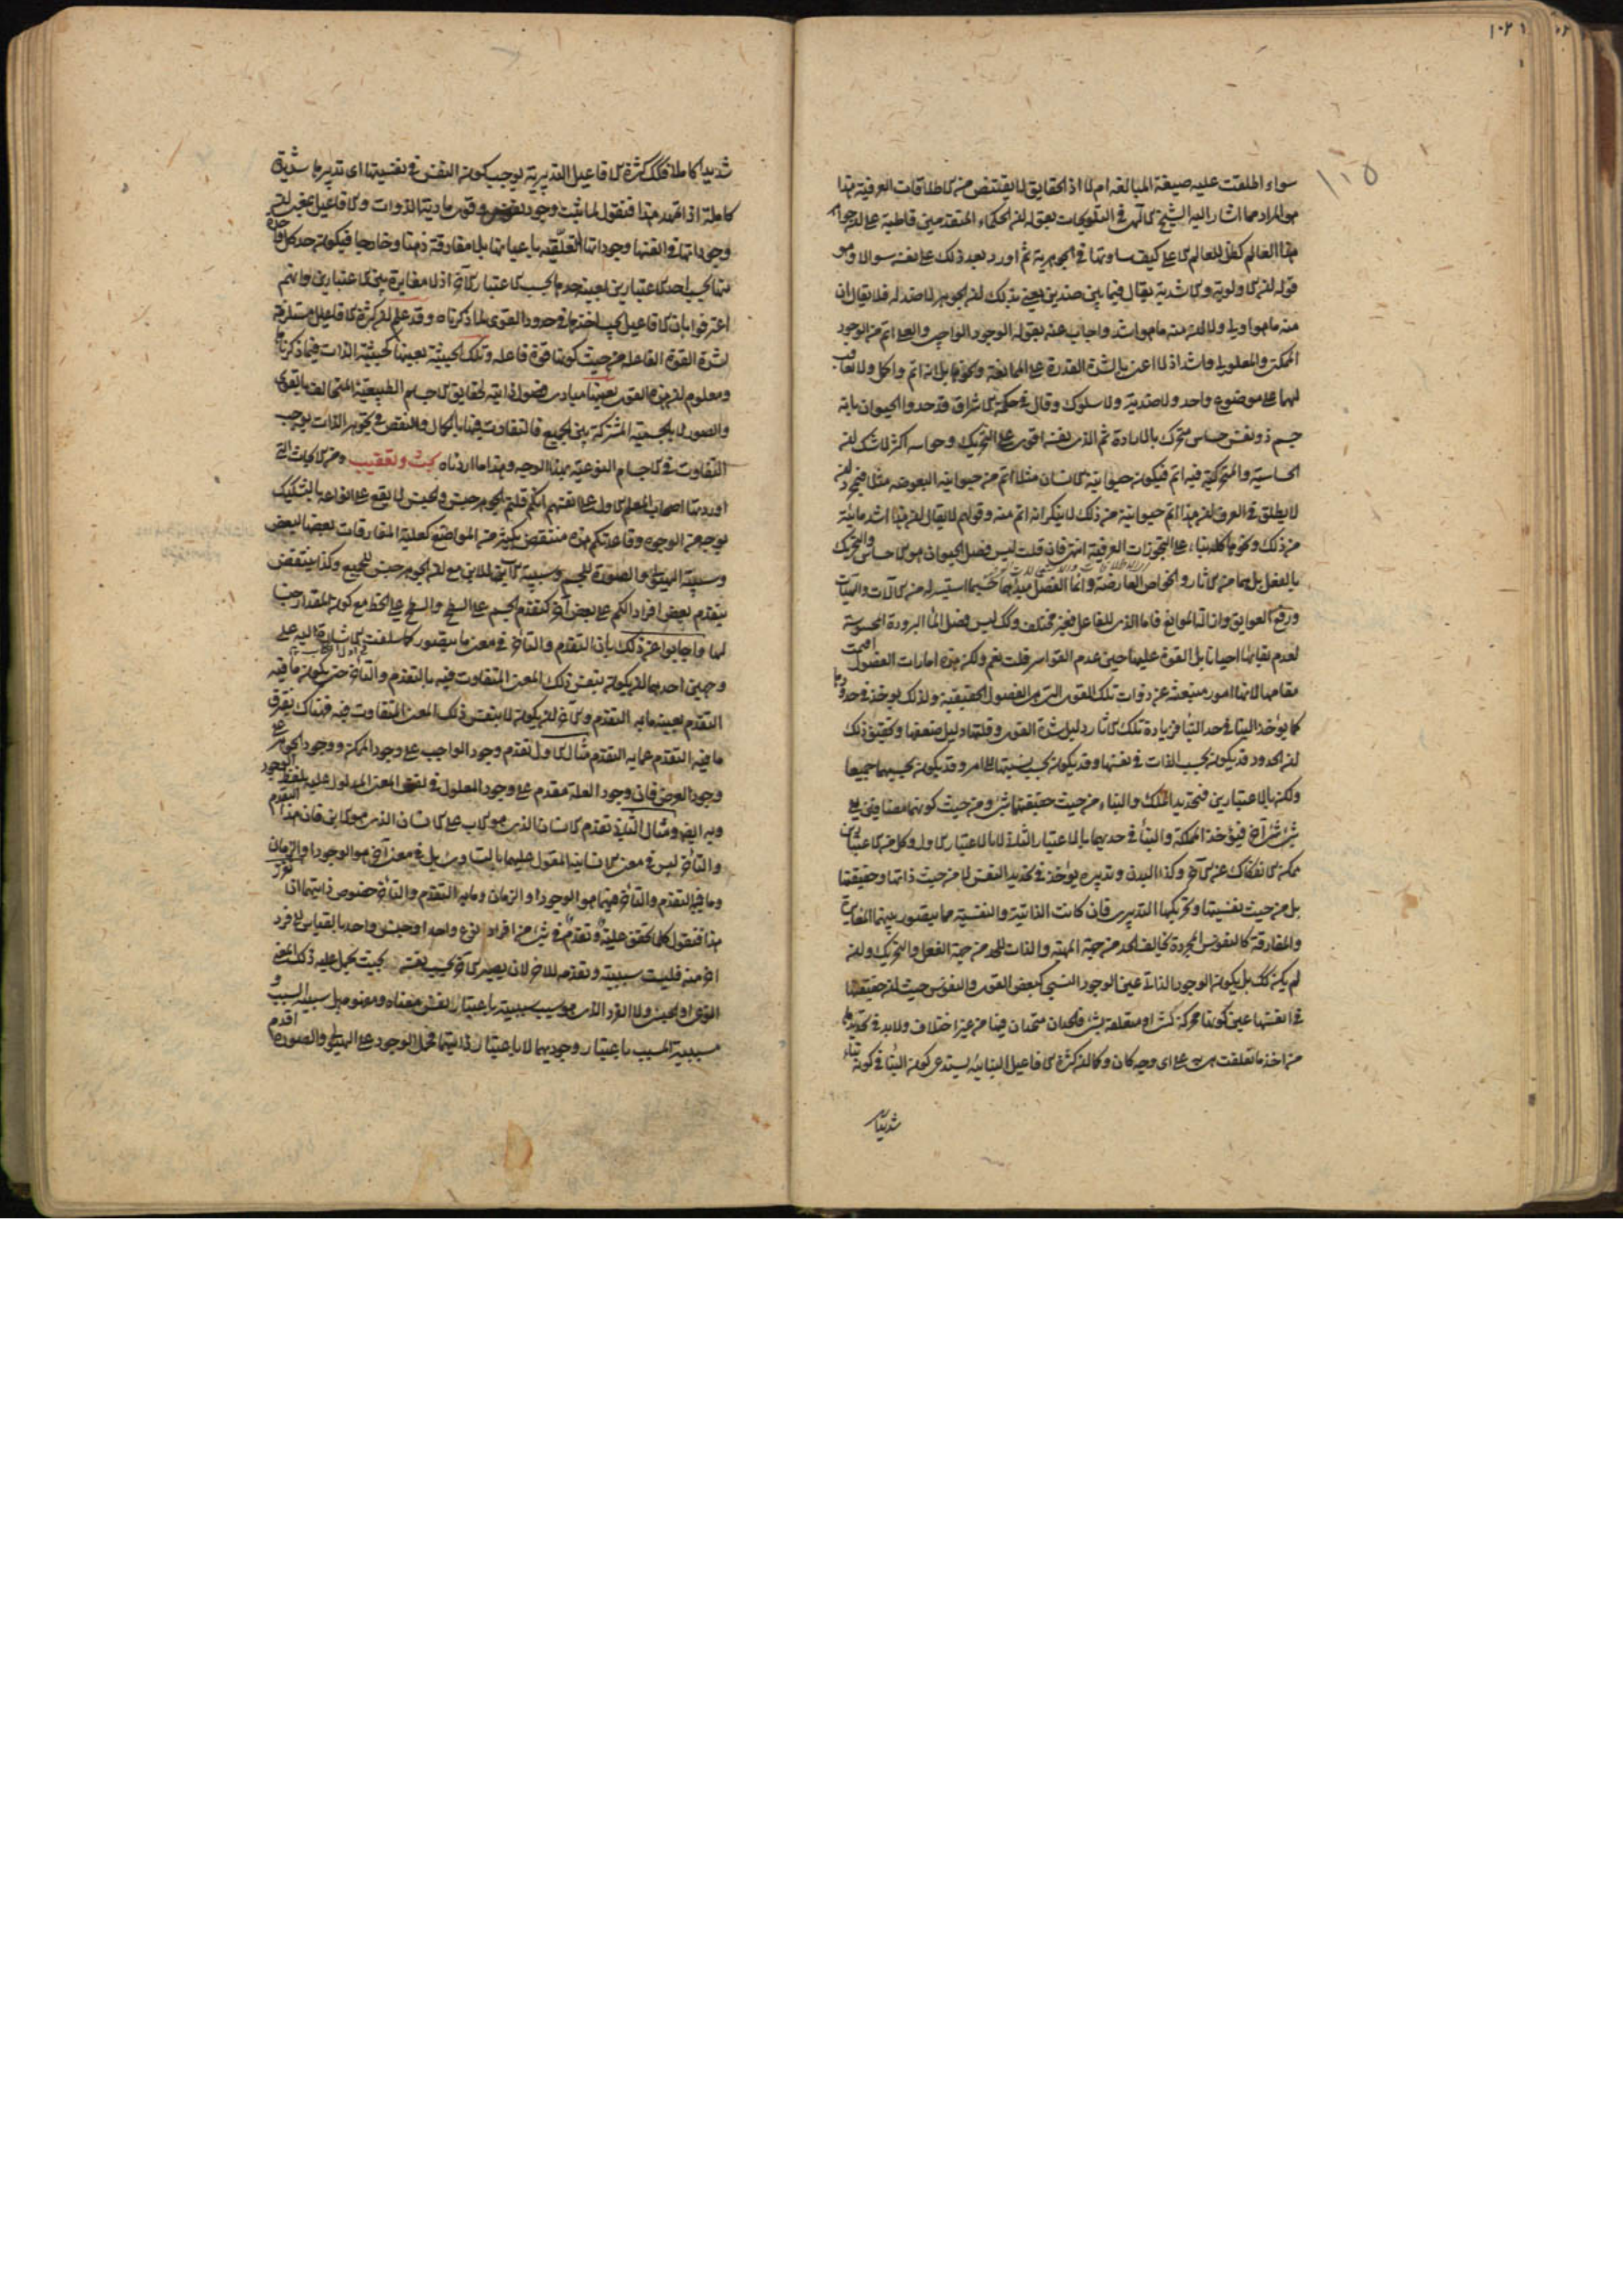 ١٠٢١
١١٥
سواء اطلقت عليه صيغة المبالغة ام لا اذ الحقايق لا يقتنص من الاطلاقات العرفية هذا
هو المراد مما اشار اليه الشيخ الالهى فى التلويحات بقوله ان الحكماء المتقدمين قاطبة على ان جواهر
هذا العالم كظل للعالم الاعلى كيف ساوتها فى الجوهرية ثم اورد بعد ذلك على نفسه سوالا وهو
قوله ان الاولوية والاشدية يقال فيما بين ضدين يعنى بذلك ان الجوهر لا ضد له فلا يقال ان
منه ما هو اولى ولا ان منه ما هو اشد واجاب عنه بقوله الوجود الواجب والعلى اتم من الوجود
الممكن والمعلولى واشد اذ لا اعنى بالشدة القدرة على الممانعة ونحوها بل انه اتم واكمل ولا تعاقب
لهما على موضوع واحد ولا ضدية ولا سلوك وقال فى حكمة الاشراق قد حدوا الحيوان بانه
جسم ذو نفس حساس متحرك بالارادة ثم الذى نفسه اقوى على التحريك وحواسه اكثر لا شك ان
الحساسية والمتحركية فيه اتم فيكون حيوانية الانسان مثلا اتم من حيوانية البعوضة مثلا فبمجرد ان
لا يطلق فى العرف ان هذا اتم حيوانية من ذلك لا ينكر انه اتم منه وقولهم لا يقال ان هذا اشد مائية
من ذلك ونحوها كله بناء على التجوزات العرفية انتهى فان قلت ليس فصل الحيوان هو الحساس والتحريك
بالفعل بل هما من الاثار والخواص العارضة وانما الفصل مبدئهما حسبما استيسر له من الالات والهيئات
ورفع العوايق وازالة الموانع فاما الذى للفاعل فغير مختلف وكك ليس فصل الماء البرودة المحسوسة
لعدم بقائها احيانا بل القوة عليها حين عدم القواسر قلت نعم ولكن هذه امارات الفصول اقيمت
مقامها لانها امور منبعثة عن ذوات تلك القوى التى هى الفصول الحقيقية ولذلك يوخذ فى حدودها
كما يوخذ البناء فى حد البناء فزيادة تلك الاثار دليل شدة القوى وقلتها دليل ضعفها وتحقيق ذلك
ان الحدود قد يكون بحسب الذات فى نفسها وقد يكون بحسب نسبتها الى امر وقد يكون بحسبهما جميعا
ولكن بالاعتبارين فتحديد الملك والبناء من حيث حقيقتهما شئ ومن حيث كونهما مضافين الى
شئ شئ آخر فيؤخذ المملكة والبناء فى حديهما بالاعتبار الثانى لا بالاعتبار الاول وكل من الاعتبارين
ممكن الانفكاك عن الاخر وكذا البدن وتدبيره يوخذ فى تحديد النفس لا من حيث ذاتها وحقيقتها
بل من حيث نفسيتها وتحريكها التدبيرى فان كانت الذاتية والنفسية مما يتصور بينهما المغايرة
والمفارقة كالنفوس المجردة يخالف الحد من جهة المهية والذات للحد من جهة الفعل والتحريك وان
لم يكن كك بل يكون الوجود الذاتى عين الوجود النسبى كبعض القوى والنفوس حيث ان حقيقتها
فى انفسها عين كونها محركة لشئ او متعلقة بشئ فالحدان متحدان فيها من غير اختلاف ولا بد فى تحديدها
من اخذ ما تعلقت به على اى وجه كان وكما ان كثرة الافاعيل البنائية يستدعى كون البناء فى كونه بناء
شديدا
شديدا كاملا فكك كثرة الافاعيل التدبيرية يوجب كون النفس فى نفسيتها اى تدبيرها شديدة
كاملة اذا تمهد هذا فنقول لما ثبت وجود نفوس وقوى مادية الذوات والافاعيل بمعنى ان
وجوداتها فى انفسها وجوداتها التعلقية باعيانها بلا مفارقة ذهنا وخارجا فيكون حد كل واحدة
منها بحسب احد الاعتبارين بعينه حدها بحسب الاعتبار الاخر اذ لا مغايرة بين الاعتبارين وانتم
اعترفوا بان الافاعيل يجب اخذها فى حدود القوى لما ذكرناه وقد علم ان كثرة الافاعيل مستلزمة
لشدة القوة الفاعلة من حيث كونها قوة فاعلة وتلك الحيثية بعينها كحيثية الذات فيما ذكرناها
ومعلوم ان هذه القوى بعينها مبادى فصول ذاتية لحقايق الاجسام الطبيعية المتخالفة بالقوى
والصور لا بالجسمية المشتركة بين الجميع فالتفاوت فيها بالكمال والنقص فى تجوهر الذات يوجب
التفاوت فى الاجسام النوعية بهذا الوجه وهذا ما اردناه بحث وتعقيب ومن الابحاث التى
اوردها اصحاب المعلم الاول على انفسهم انكم قلتم الجوهر جنس والجنس لا يقع على انواعه بالتشكيك
بوجه من الوجوه وقاعدتكم هذه منتقض بكثير من المواضع كعلية المفارقات بعضها لبعض
وسببية الهيولى والصورة للجسم وسببية الاب للابن مع ان الجوهر جنس للجميع وكذا ينتقض
بتقدم بعض افراد الكم على بعض آخر كتقدم الجسم على السطح والسطح على الخط مع كون المقدار جنسا
لها واجابوا عن ذلك بان التقدم والتأخر فى معنى ما يتصور كما سلفت الاشارة اليه على
وجهين احدهما ان يكون بنفس ذلك المعنى المتفاوت فيه بالتقدم والتأخر حتى يكون ما فيه
التقدم بعينه ما به التقدم والاخر ان يكون لا بنفس ذلك المعنى المتفاوت فيه فهناك يفرق
ما فيه التقدم عما به التقدم مثال الاول تقدم وجود الواجب على وجود الممكن ووجود الجوهر على
وجود العرض فان وجود العلة متقدم على وجود المعلول فى نفس المعنى المدلول عليه بلفظ الوجود
وبه ايضا ومثال الثانى تقدم الانسان الذى هو الاب على الانسان الذى هو الابن فان هذا التقدم
والتأخر ليس فى معنى الانسانية المقول عليهما بالتساوى بل فى معنى آخر هو الوجود او الزمان
وما فيه التقدم والتأخر فيهما هو الوجود او الزمان وما به التقدم والتأخر خصوص ذاتيهما اذا تقرر
هذا فنقول كلما تحقق علية وتقدم فى شئ من افراد نوع واحد او جنس واحد بالقياس الى فرد
آخر منه فليست سببيته وتقدمه للاخر لان يصير الاخر بحسب نفسه بحيث يحمل عليه ذلك المعنى
النوعى او الجنسى ولا الفرد الذى هو سبب سببيته باعتبار نفس معناه ومفهومه بل سببية السبب و
مسببية المسبب باعتبار وجوديهما لا باعتبار ذاتيتهما فحمل الوجود على الهيولى والصورة اقدم